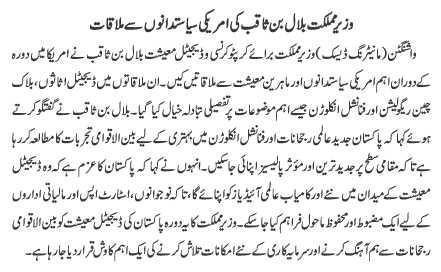 وزیر مملکت بلال بن ثاقب کی امریکی سیاستدانوں سے ملاقات
واشنگٹن (مانیٹرنگ ڈیسک) وزیر مملکت برائے کرپٹو کرنسی و ڈیجیٹل معیشت بلال بن ثاقب نے امریکا میں دورہ
کے دوران اہم امریکی سیاستدانوں اور ماہرین معیشت سے ملاقاتیں کیں۔ ان ملاقاتوں میں ڈیجیٹل اثاثوں، بلاک
چین ریگولیشن اور فنانشل انکلوژن جیسے اہم موضوعات پر تفصیلی تبادلہ خیال کیا گیا۔ بلال بن ثاقب نے گفتگو کرتے
ہوئے کہا کہ پاکستان جدید عالمی رجحانات اور فنانشل انکلوژن میں بہتری کے لیے بین الاقوامی تجربات کا مطالعہ کر رہا
ہے تاکہ مقامی سطح پر جدید ترین اور مؤثر پالیسیز اپنائی جا سکیں۔ انہوں نے کہا کہ پاکستان کا عزم ہے کہ وہ ڈیجیٹل
معیشت کے میدان میں نئے اور کامیاب عالمی آئیڈیاز کو اپنائے گا، تاکہ نوجوانوں، اسٹارٹ اپس اور مالیاتی اداروں
کے لیے ایک مضبوط اور محفوظ ماحول فراہم کیا جا سکے۔ وزیر مملکت کا یہ دورہ پاکستان کی ڈیجیٹل معیشت کو بین الاقوامی
رجحانات سے ہم آہنگ کرنے اور سرمایہ کاری کے نئے امکانات تلاش کرنے کی ایک اہم کاوش قرار دیا جا رہا ہے۔